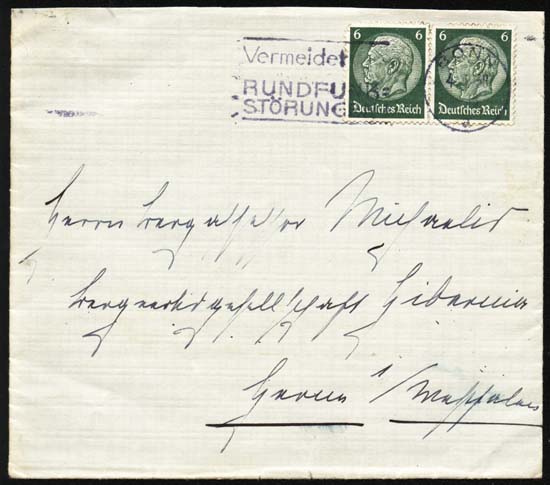 6 6 6 6
Vermeidet
RUNDFU
STÖRUNG
BONN
Deutsches Reich Deutsches Reich
Herrn Bergassessor Michaelis
Bergwerksgesellschaft Hibernia
Herne i/Westfalen